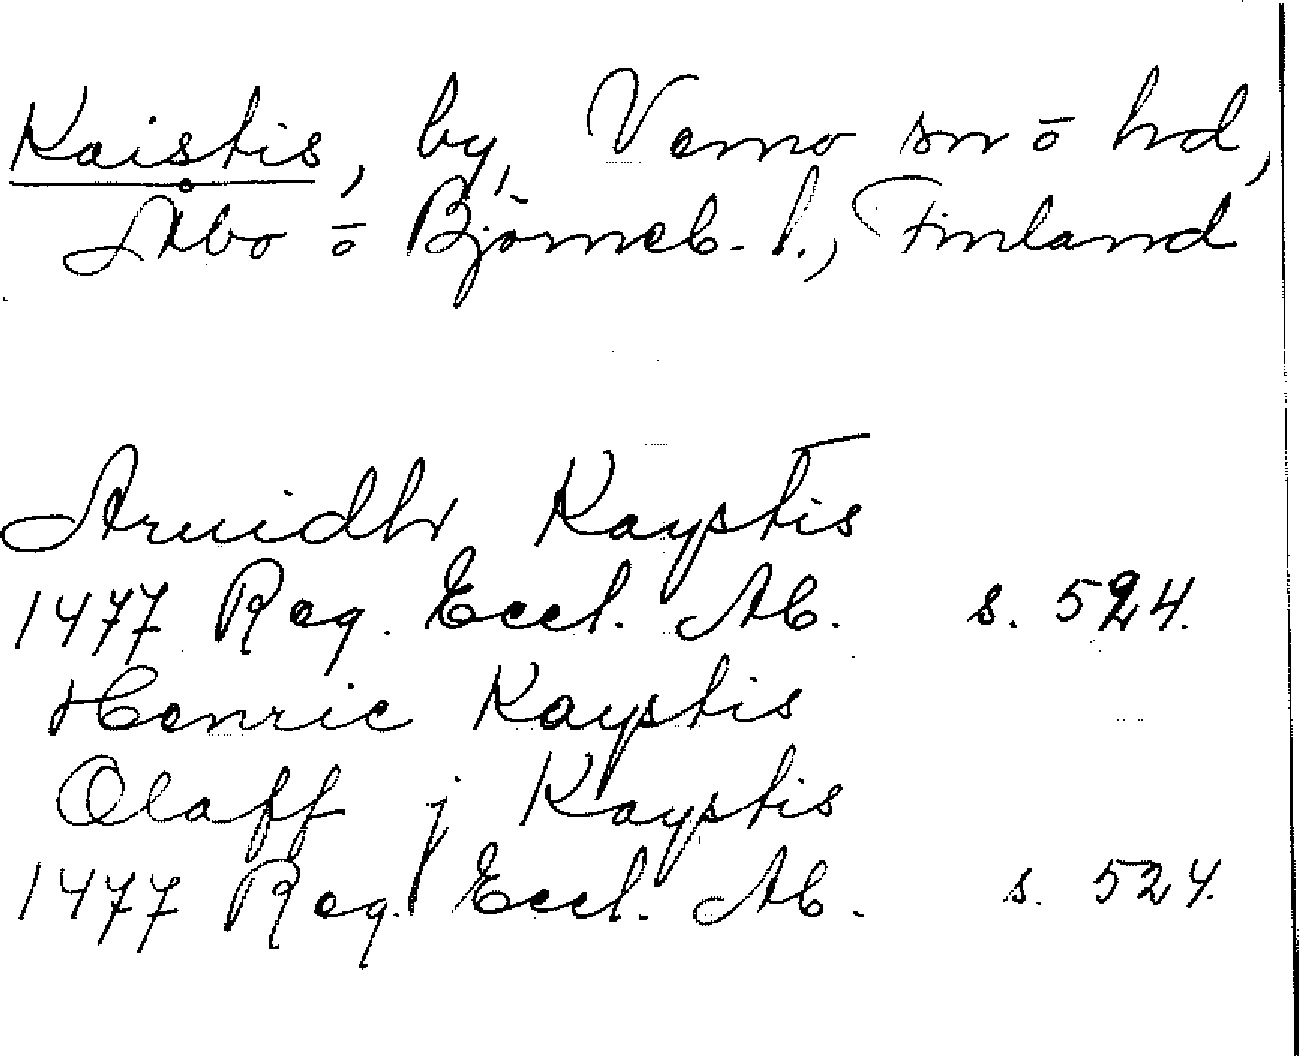 Kaistis, by, Vemo sn ō hd,
Åbo ō Björneb. l., Finland
Aruidh Kaystis
1477 Reg. Eccl. Ab. s. 524.
Henric Kaystis
Olaff j Kaystis
1477 Reg. Eccl. Ab. s. 524.